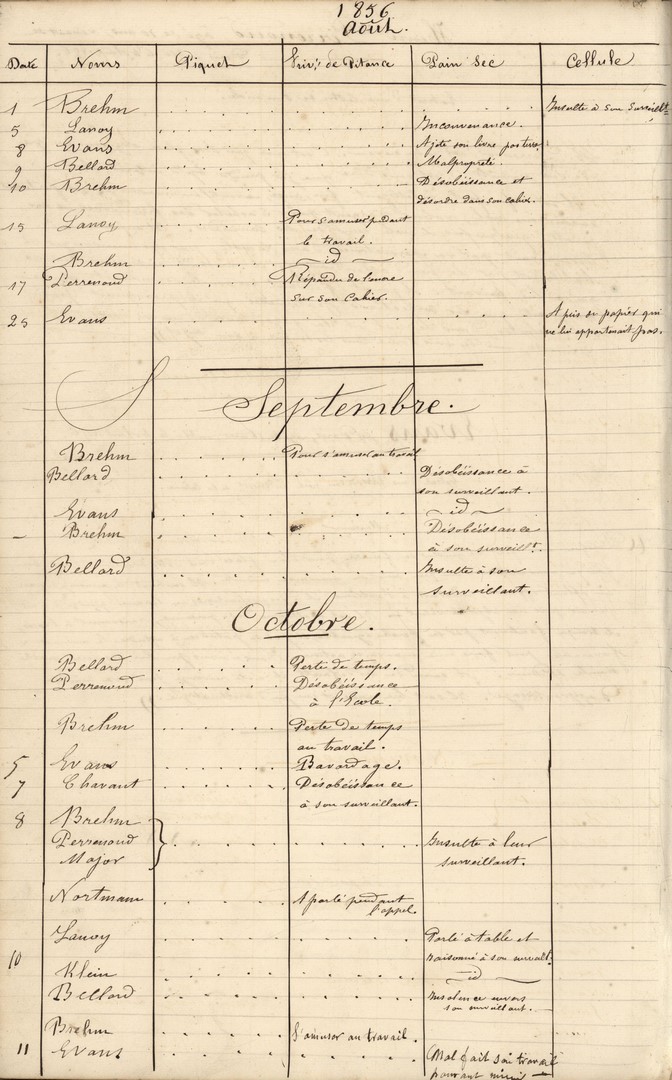 1856
Août.
Date Noms Piquet Priv.n de Pitance Pain Sec Cellule
1 Brehm Insulte à son surveillt.
5 Lanoy Inconvenance.
8 Evans A jeté son livre par terre.
9 Bellard Malpropreté.
10 Brehm Désobéissance et
désordre dans son cahier.
15 Lanoy Pour s'amuser pendant
le travail.
Brehm id
17 Perrenoud Répandu de l'encre
sur son cahier.
25 Evans A pris du papier qui
ne lui appartenait pas.
Septembre.
Brehm Pour s'amuser au travail
Bellard Désobéissance à
son surveillant.
Evans id
Brehm Désobéissance
à son surveillt.
Bellard Insulte à son
surveillant.
Octobre.
Bellard Perte de temps.
Perrenoud Désobéissance
à l'Ecole.
Brehm Perte de temps
au travail.
5 Evans Bavardage.
7 Chavant Désobéissance
à son surveillant.
8 Brehm
Perrenoud Insulte à leur
Major surveillant.
Nortmann A parlé pendant
l'appel.
Lanoy Parlé à table et
10 raisonné à son surveillt.
Klein id
Bellard Insolence envers
son surveillant.
Brehm S'amuser au travail.
11 Evans Mal fait son travail
pouvant mieux